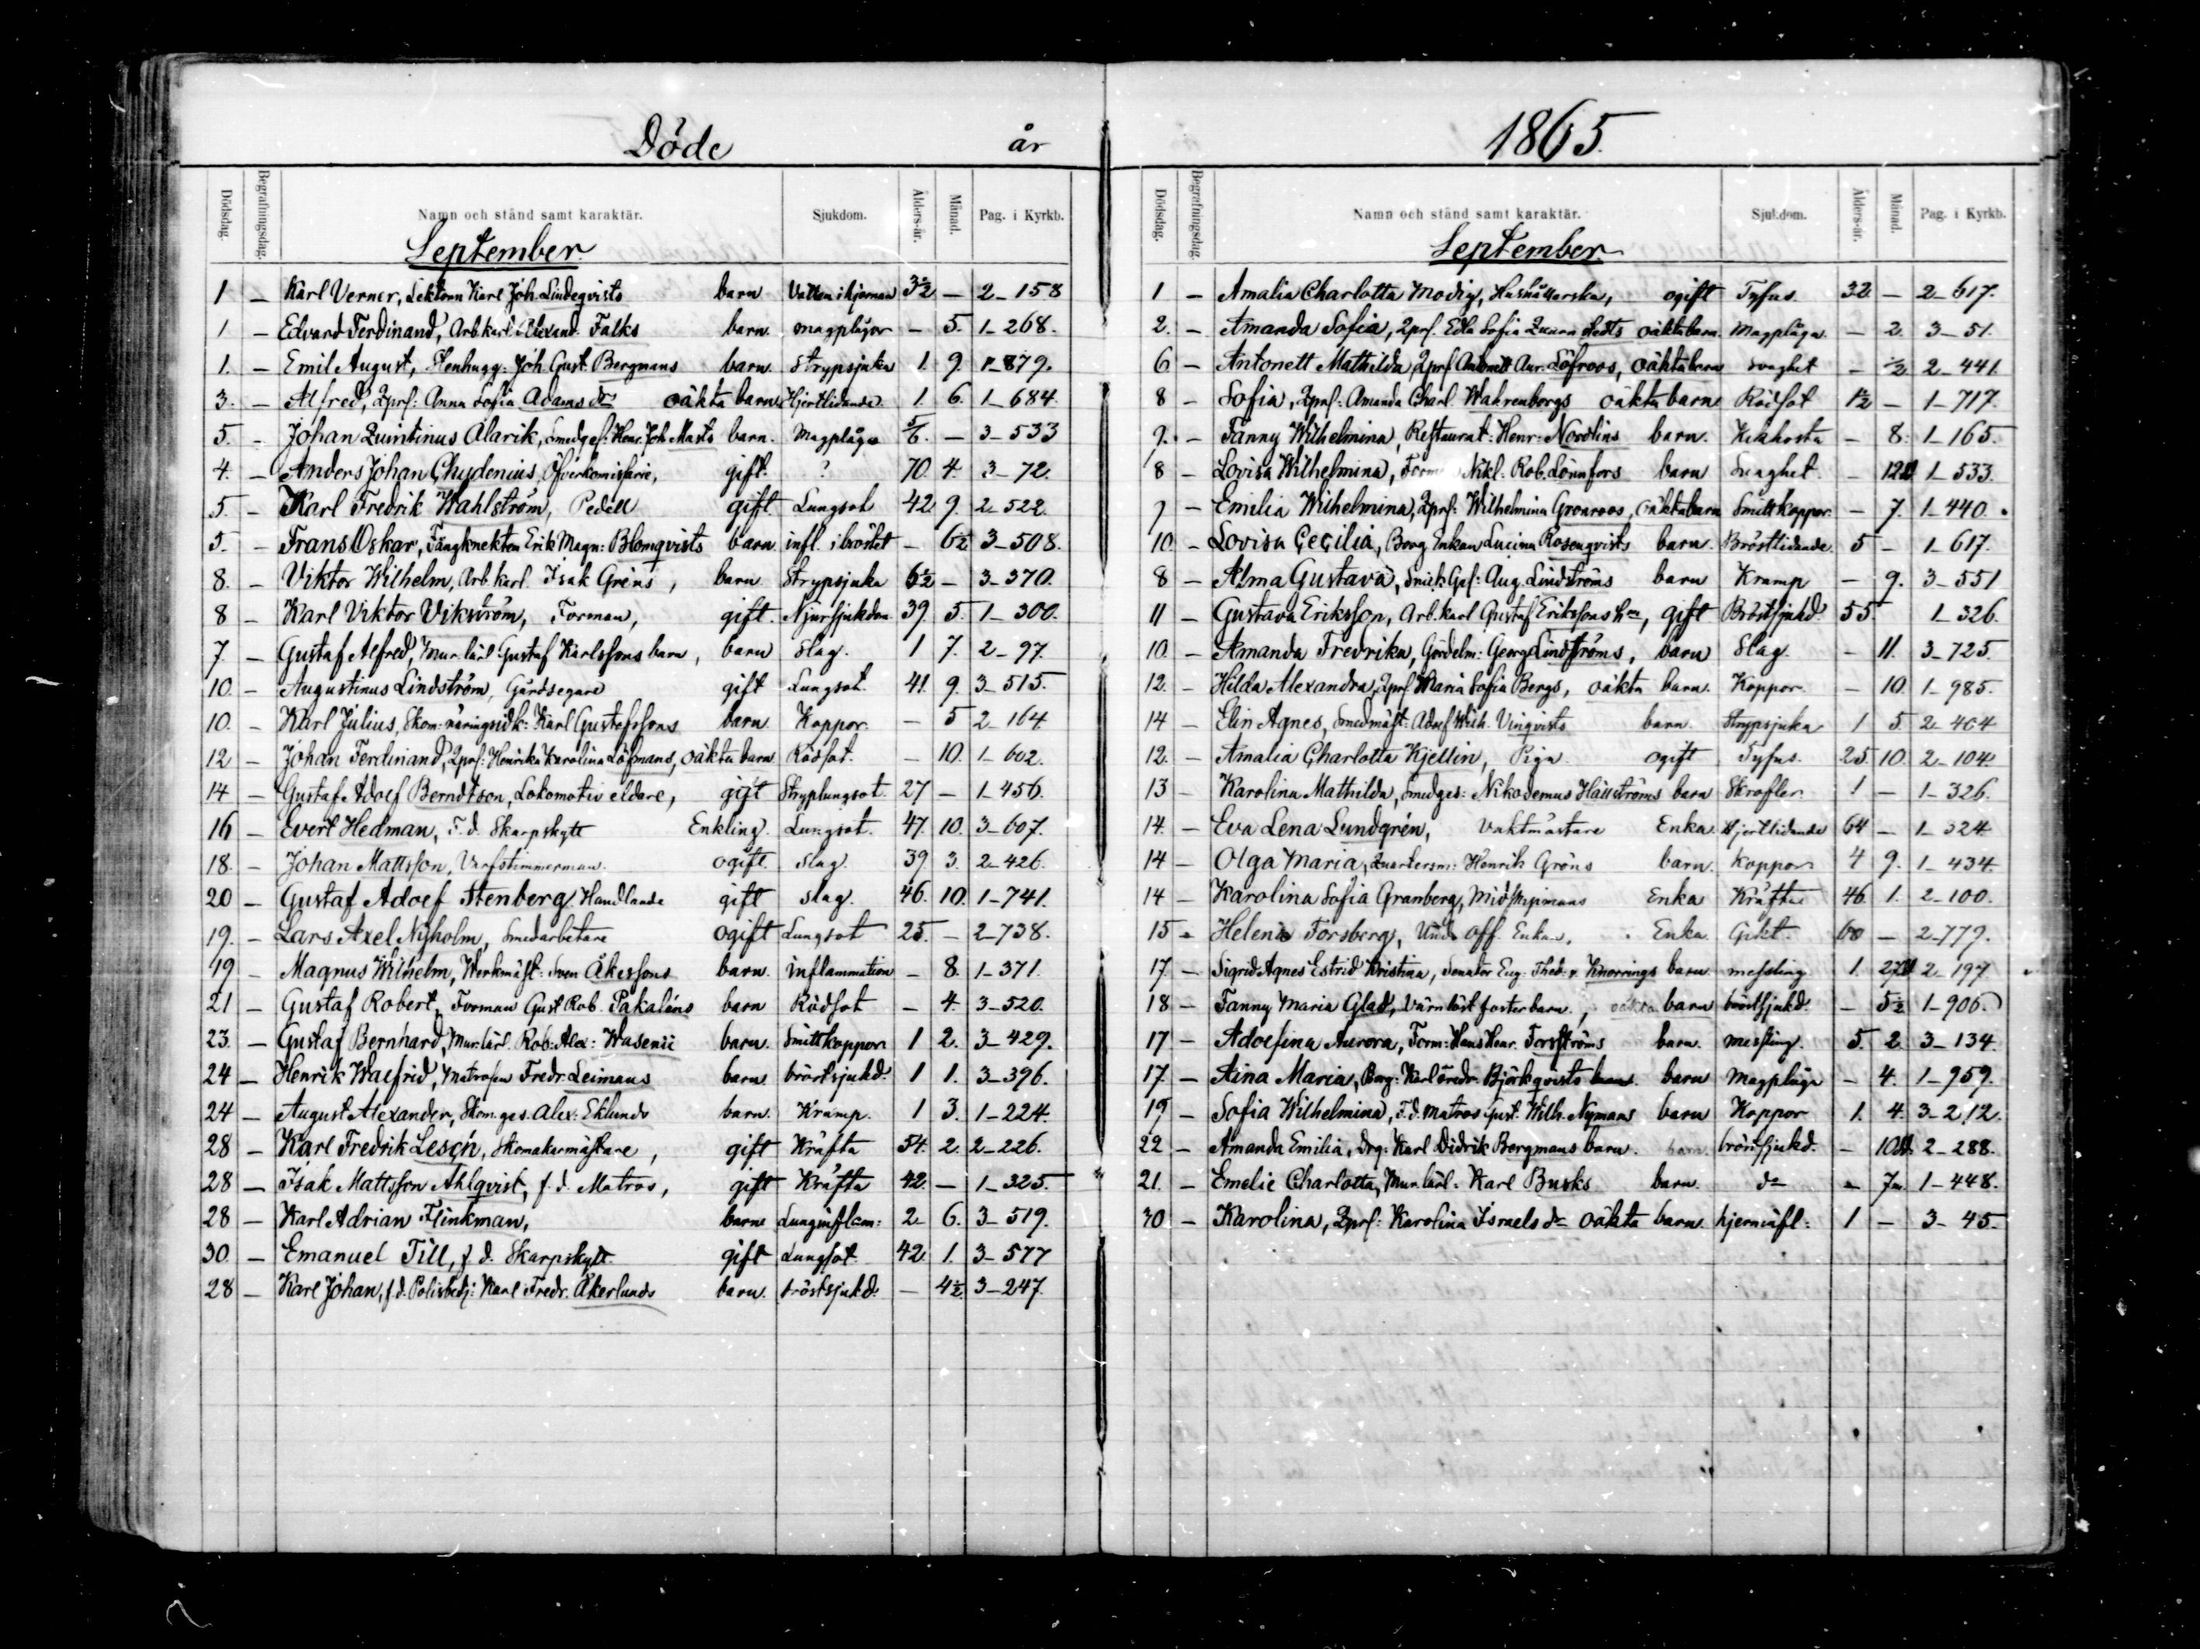 Döde år
Dödsdag. Begrafningsdag. Namn och stånd samt karaktär. Sjukdom. Ålders-år. Månad. Pag. i Kyrkb.
September
1 — Karl Verner, Lektorn Karl Joh. Lindeqvists barn Vatten i hjernan 3½ — 2-158
1 — Edvard Ferdinand, Arb.karl Alexand. Falks barn. magplågor — 5. 1-268.
1. — Emil August, Stenhugg. Joh. Gust. Bergmans barn. Strypsjuka 1. 9. 1-879.
3. — Alfred, Qprs: Anna Sofia Adams dr oäkta barn Hjertlidande. 1. 6. 1-684.
5. — Johan Quintinus Alarik, Smedges: Henr. Joh. Masts barn. Magplågor 5/6. — 3-533
4. — Anders Johan Chydenius, Öfverkomisarie, gift. ? 70. 4. 3-72.
5. — Karl Fredrik Wahlström, Pedell gift Lungsot 42 9. 2-522
5. — Frans Oskar, Fångknekten Erik Magn: Blomqvists barn infl. i bröstet — 6½ 3-508.
8. — Viktor Wilhelm, Arb. karl. Isak Gréns, barn. Strypsjuka 6½ — 3-370.
8 — Karl Viktor Vikström, Forman, gift. Njursjukdom 39. 5. 1-300.
7. — Gustaf Alfred, Mur.lärl. Gustaf Karlssons barn, barn Slag. 1 7. 2-97.
10. — Augustinus Lindström, Gårdsegare gift Lungsot. 41. 9. 3-515.
10. — Karl Julius, Skom. näringsidk: Karl Gustafssons barn Koppor. — 5 2-164
12 — Johan Ferdinand, Qprs: Henrika Karolina Löfmans, oäkta barn Rödsot. — 10. 1-602.
14 — Gustaf Adolf Berndtson, Lokomotiv eldare, gift Struplungsot 27 — 1-456.
16 — Evert Hedman, F.d. Skarpskytt Enkling. Lungsot. 47. 10. 3-607.
18. — Johan Mattsson, Varfstimmerman. ogift. Slag. 39 3. 2-426.
20 — Gustaf Adolf Stenberg Handlande gift Slag. 46. 10. 1-741.
19. — Lars Axel Nyholm, Smedarbetare ogift Lungsot 25. — 2-738.
19 — Magnus Wilhelm, Werkmäst: Sven Åkessons barn. inflammation — 8. 1-371.
21 — Gustaf Robert, Forman Gust. Rob. Pakaléns barn Rödsot — 4. 3-520.
23. — Gustaf Bernhard, Mur.lärl. Rob. Alex: Wasenii barn. Smittkoppor 1 2. 3-429.
24 — Henrik Walfrid, Matrosen Fredr. Leimans barn. bröstsjukd. 1 1. 3-396.
24 — August Alexander, Skom.ges. Alex. Eklunds barn. Kramp. 1 3. 1-224.
28 — Karl Fredrik Lesch, Skomakarmästare, gift Kräfta 54. 2. 2-226.
28 — Isak Mattsson Ahlqvist, f.d. Matros, gift Kräfta 42. — 1-325.
28 — Karl Adrian Flinkman, barn Lunginflam: 2 6. 3-519.
30. — Emanuel Till, f.d. Skarpskytt. gift Lungsot. 42. 1. 3-577
28 — Karl Johan, f.d. Polisbetj: Karl Fredr. Åkerlunds barn. bröstsjukd: — 4½ 3-247.
1865.
Dödsdag. Begrafningsdag. Namn och stånd samt karaktär. Sjukdom. Ålders-år. Månad. Pag. i Kyrkb.
September
1 — Amalia Charlotta Modig, Hushållerska, ogift Tyfus. 32 — 2-617.
2. — Amanda Sofia, Qprs. Edla Sofia Stedts oäkta barn. Magplågor — 2. 3-51.
6 — Antonett Mathilda, Qprs Antonett Aur. Löfroos, oäkta barn svaghet — ½ 2-441.
8 — Sofia, Qprs: Amanda Charl. Wahrenbergs oäkta barn Rödsot 1½ — 1-717.
7. — Fanny Wilhelmina, Restaurat: Henr: Nordlins barn. Kikhosta — 8. 1-165.
8 — Lovisa Wilhelmina, Form Nikl. Rob. Lönnfors barn Svaghet. — 12d 1-533.
7 — Emilia Wilhelmina, Qprs: Wilhelmina Grönroos, oäkta barn Smittkoppor. — 7. 1-440.
10. — Lovisa Cecilia, Borg. Enkan Lucina Rosenqvists barn. Bröstlidande. 5 — 1-617.
8 — Alma Gustava, Snick. Ges: Aug. Lindströms barn Kramp — 9. 3-551
11 — Gustava Eriksson, Arb.karl Gustaf Erikssons h:u, gift Bröstsjukd. 55. 1-326.
10. — Amanda Fredrika, Gördelm: Georg Lindströms, barn Slag. — 11. 3-725
12. — Hilda Alexandra, Qprs Maria Sofia Bergs, oäkta barn. Koppor. — 10. 1-985.
14 — Elin Agnes, Smedmäst: Adolf Wilh. Vinqvists barn. Strypsjuka 1 5. 2-404
12. — Amalia Charlotta Kjellin, Piga ogift Tyfus. 25. 10. 2-104.
13 — Karolina Mathilda, Smedges: Nikodemus Hällströms barn Skrofler 1 — 1-326.
14. — Eva Lena Lundgrén, Vaktmästare Enka. Hjertlidande 64 — 1-324
14 — Olga Maria, Quartersm: Henrik Gröns barn. koppor 4 9. 1-434.
14 — Karolina Sofia Granberg, Midskipmans Enka Kräfta 46. 1. 2-100.
15 — Helena Forsberg, Und. off. Enka. Enka Gikt. 60 — 2-779.
17. — Sigrid Agnes Estrid Kristina, Senator Eug. Theod. v. Knorrings barn. messling 1. 27d 2-197
18 — Fanny Maria Glad, Värnlöst fosterbarn, oäkta barn bröstsjukd. — 5½ 1-906.
17 — Adolfina Aurora, Form: Hans Henr. Forsströms barn. messling. 5. 2. 3-134.
17. — Aina Maria, Borg: Karl Fredr. Björkqvists barn. barn Magplågor — 4. 1-959.
19 — Sofia Wilhelmina, F.d. Matros Gust. Wilh. Nymans barn Koppor 1. 4. 3-212.
22 — Amanda Emilia, Drg: Karl Didrik Bergmans barn. barn. bröstsjukd. — 10d. 2-288.
21. — Emelie Charlotta, Mur.lärl: Karl Busks barn. do — 7m. 1-448.
30 — Karolina, Qprs: Karolina Israels dr oäkta barn. hjerninfl: 1 — 3-45.